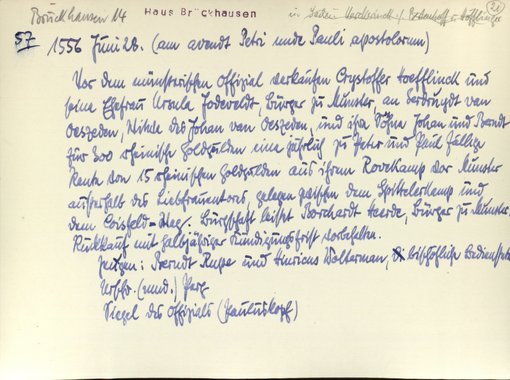 Bruckhausen 14
Haus Brückhausen
21
57
1556 Juni 28. (am avendt Petri unde Pauli apostolorum)
Vor dem münsterischen Offizial verkaufen Crystoffer Hoefflinck und
seine Ehefrau Ursula Jodeveldt, Bürger zu Münster, an Gerdrugdt van
Oeszeden, Witwe des Johan van Oeszeden, und ihre Söhne Johan und Berndt
für 300 rheinische Goldgulden eine jährlich zu Peter und Paul fällige
Rente von 15 rheinischen Goldgulden aus ihrem Rovekamp vor Münster
außerhalb des Liebfrauentors, gelegen zwischen dem Spittelerkamp und
dem Coisfeld-Weg. Bürgschaft leistet Borchardt Heerde, Bürger zu Münster.
Rückkauf mit halbjähriger Kündigungsfrist vorbehalten.
Zeugen: Berndt Rupe und Hinricus Wolterman, bischöfliche Bedienstete
Urschr. (mnd.) Perg.
Siegel des Offizials (Pauluskopf)